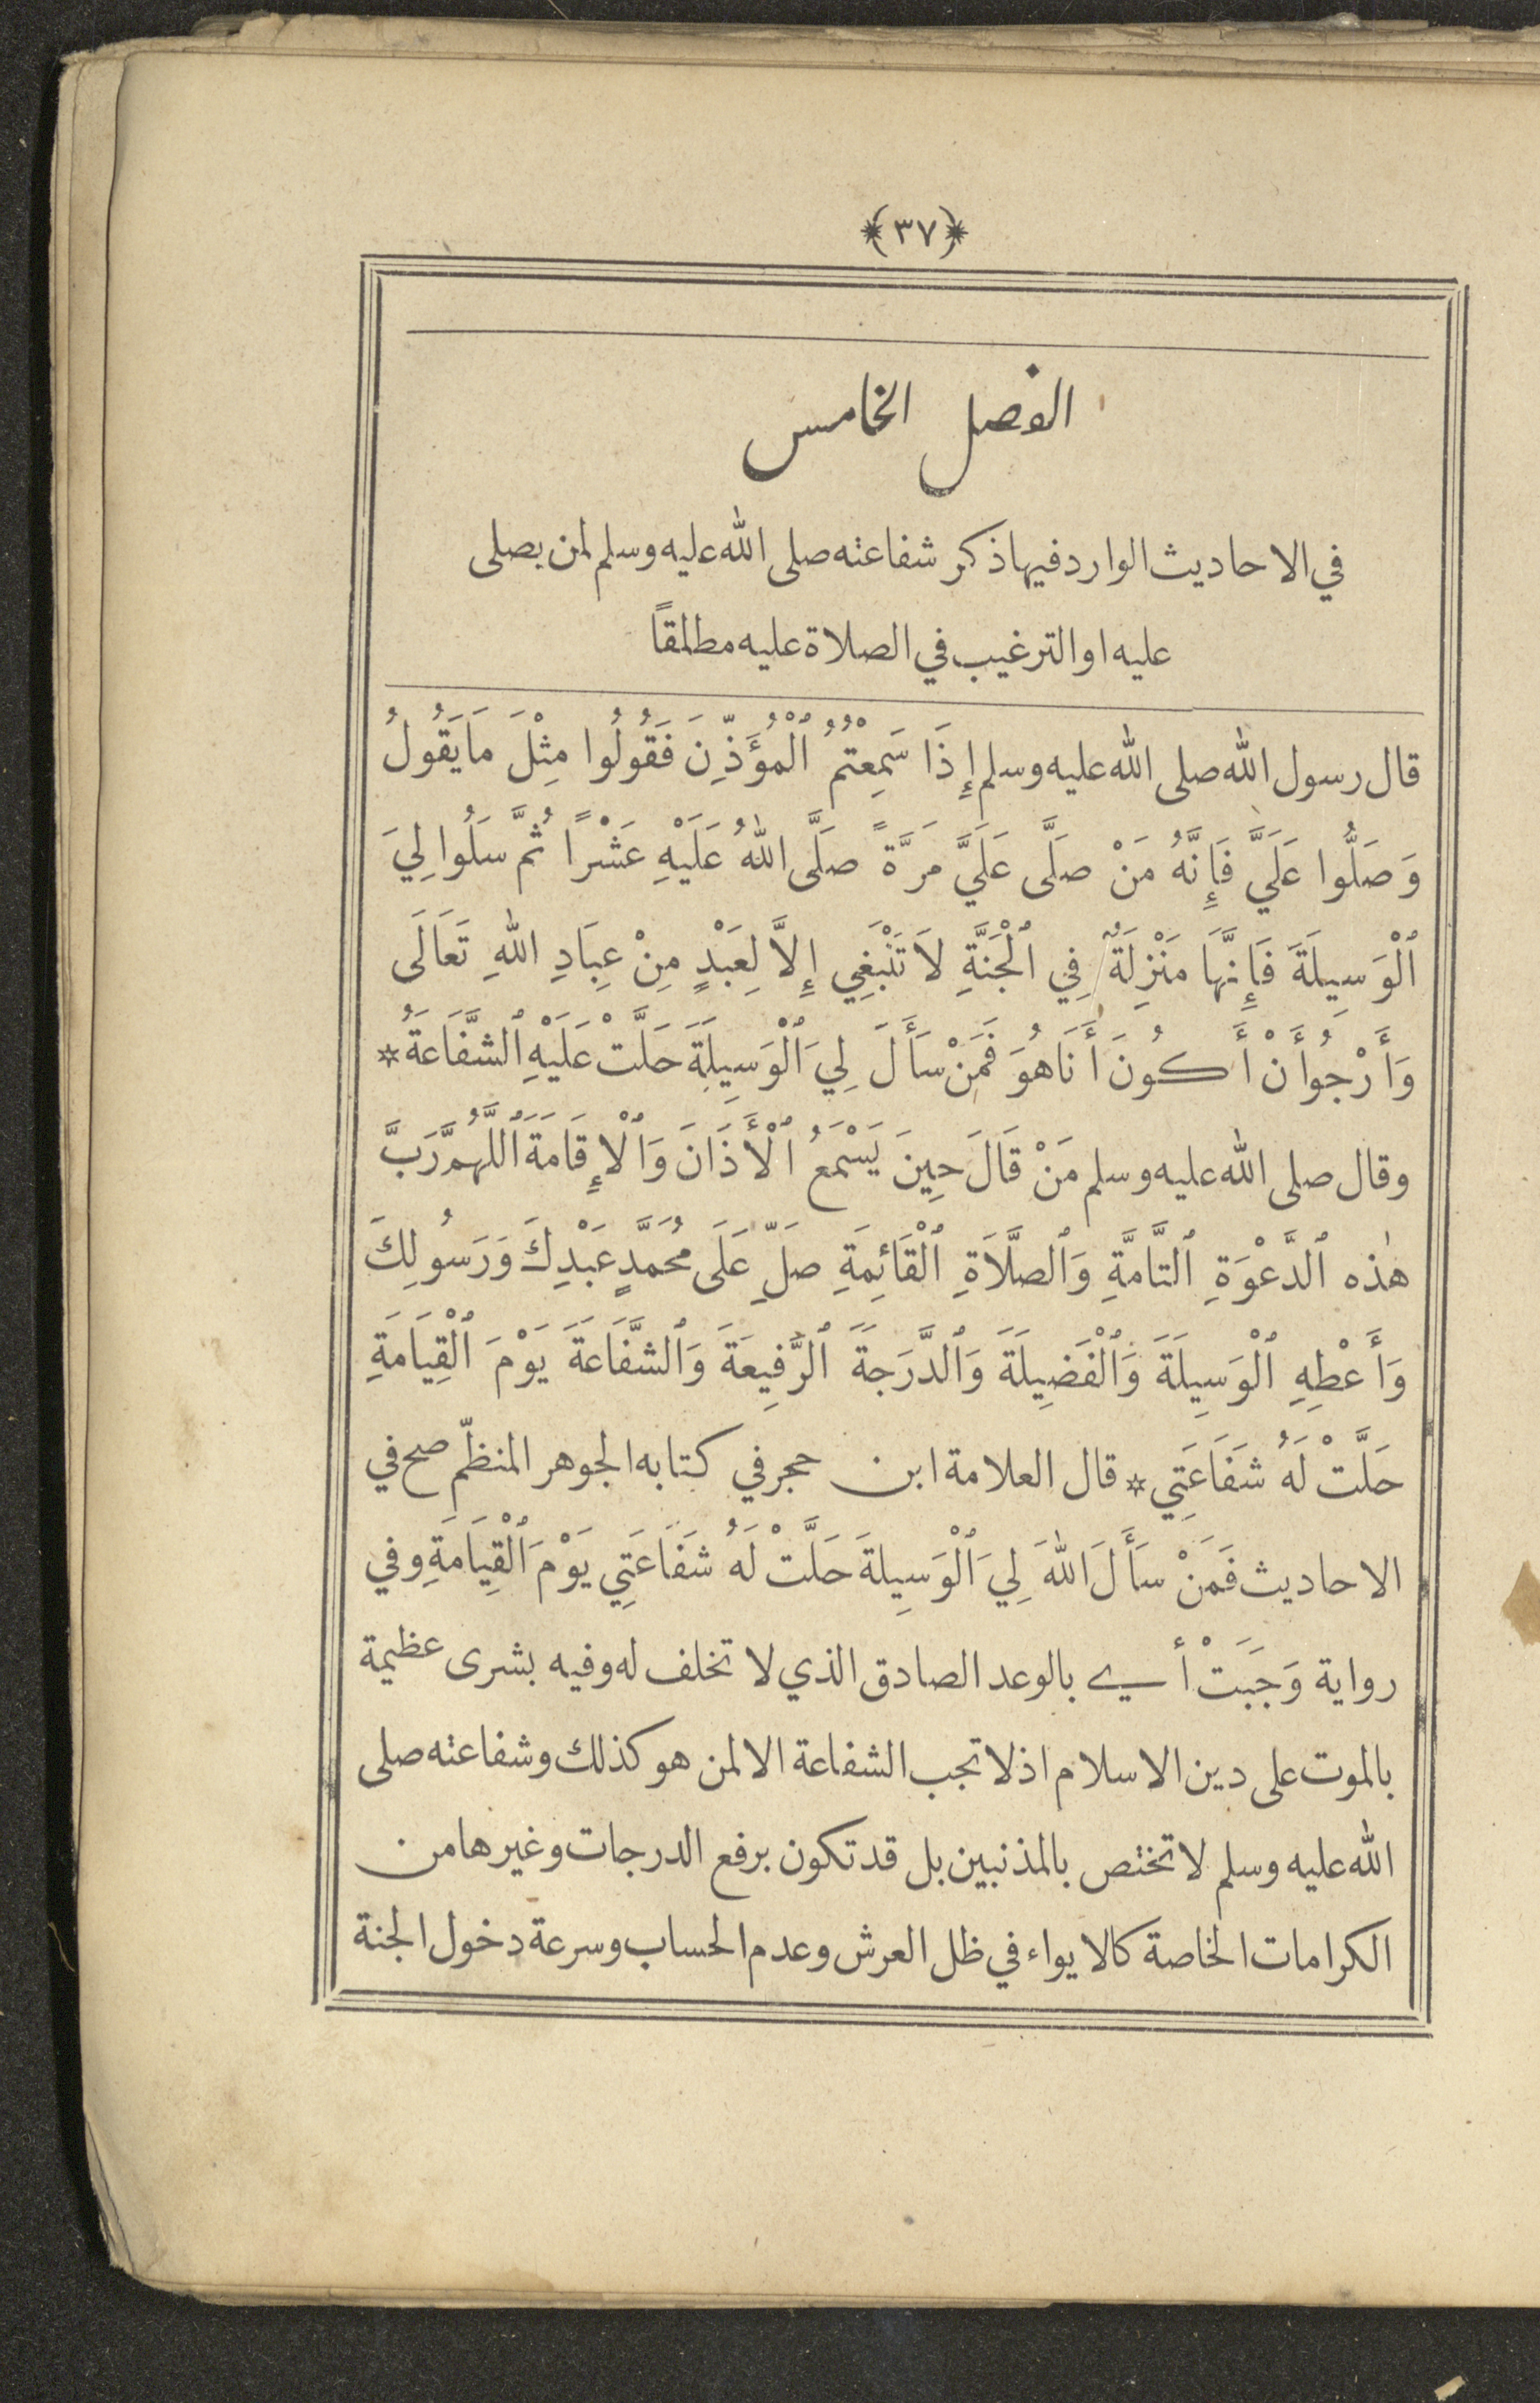 ﴿٣٧﴾
الفصل الخامس
في الاحاديث الوارد فيها ذكر شفاعته صلى الله عليه وسلم لمن يصلى
عليه او الترغيب في الصلاة عليه مطلقاً
قال رسول الله صلى الله عليه وسلم إِذَا سَمِعْتُمُ ٱلْمُؤَذِّنَ فَقُولُوا مِثْلَ مَا يَقُولُ
وَصَلُّوا عَلَيَّ فَإِنَّهُ مَنْ صَلَّى عَلَيَّ مَرَّةً صَلَّى اللهُ عَلَيْهِ عَشْرًا ثُمَّ سَلُوا لِيَ
ٱلْوَسِيلَةَ فَإِنَّهَا مَنْزِلَةٌ فِي ٱلْجَنَّةِ لاَ تَنْبَغِي إِلاَّ لِعَبْدٍ مِنْ عِبَادِ اللهِ تَعَالَى
وَأَرْجُو أَنْ أَكُونَ أَنَا هُوَ فَمَنْ سَأَلَ لِيَ ٱلْوَسِيلَةَ حَلَّتْ عَلَيْهِ ٱلشَّفَاعَةُ *
وقال صلى الله عليه وسلم مَنْ قَالَ حِينَ يَسْمَعُ ٱلْأَذَانَ وَٱلْإِقَامَةَ ٱللَّهُمَّ رَبَّ
هٰذه ٱلدَّعْوَةِ ٱلتَّامَّةِ وَٱلصَّلاَةِ ٱلْقَائِمَةِ صَلِّ عَلَى مُحَمَّدٍ عَبْدِكَ وَرَسُولِكَ
وَأَعْطِهِ ٱلْوَسِيلَةَ وَٱلْفَضِيلَةَ وَٱلدَّرَجَةَ ٱلرَّفِيعَةَ وَٱلشَّفَاعَةَ يَوْمَ ٱلْقِيَامَةِ
حَلَّتْ لَهُ شَفَاعَتِي * قال العلامة ابن حجر في كتابه الجوهر المنظّم صح في
الاحاديث فَمَنْ سَأَلَ اللهَ لِيَ ٱلْوَسِيلةَ حَلَّتْ لَهُ شَفَاعَتِي يَوْمَ ٱلْقِيَامَةِ وفي
رواية وَجَبَتْ أي بالوعد الصادق الذي لا تخلف له وفيه بشرى عظيمة
بالموت على دين الاسلام اذ لا تجب الشفاعة الا لمن هو كذلك وشفاعته صلى
الله عليه وسلم لا تختص بالمذنبين بل قد تكون برفع الدرجات وغيرها من
الكرامات الخاصة كالايواء في ظل العرش وعدم الحساب وسرعة دخول الجنة